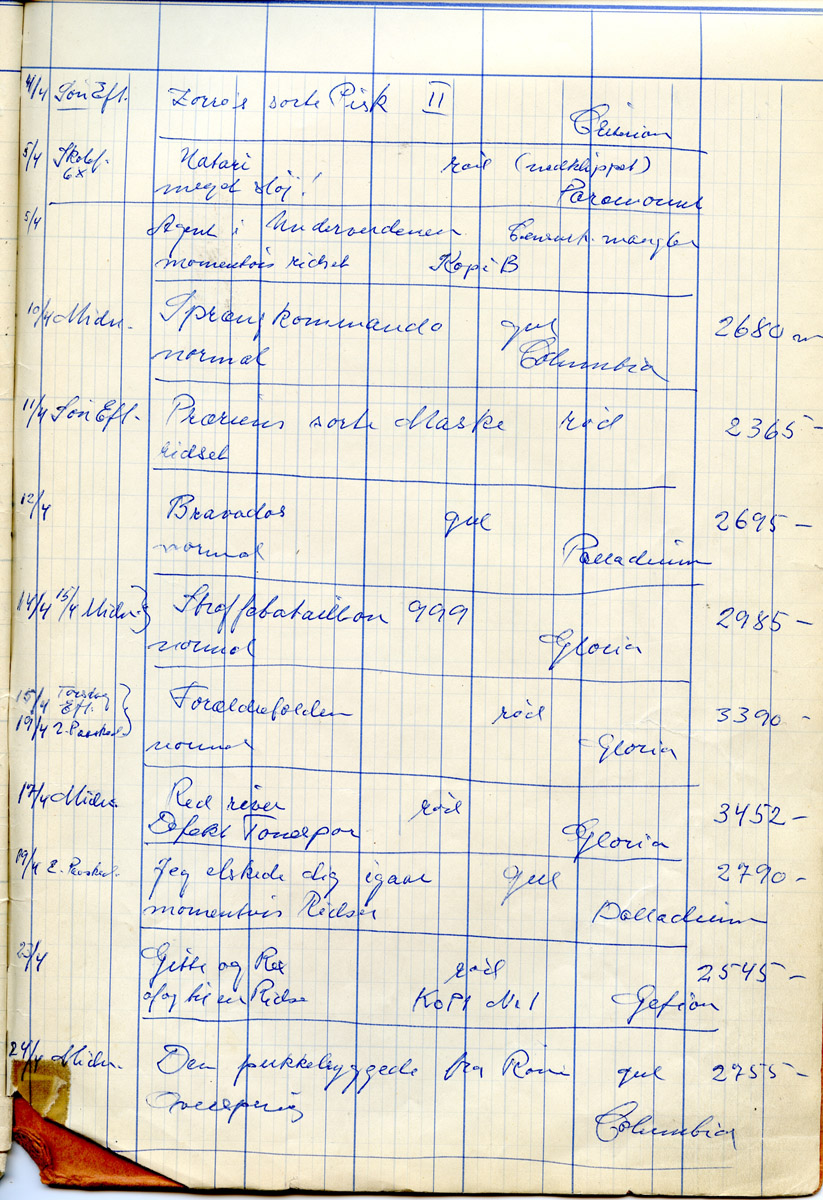 4/4 Søn Eft. Zorro's sorte Pisk II
5/4 Skolef. Hatari rød (nedklippet)
6x meget støj! Paramount
5/4 Agent i Underverdenen Censurk. mangler
momentvis ridset Kopi B
10/4 Midn. Sprængkommando gul 2680 m
normal Columbia
11/4 Søn Eft. Præriens sorte Maske rød 2365 -
ridset
12/4 Bravados gul 2695 -
normal Palladium
14/4 15/4 Midn. } Straffebataillon 999 2985 -
normal Gloria
15/4 Torsdag Eft. } Forældrefælden rød 3390 -
19/4 2. Paasked.
normal Gloria
17/4 Midn. Red river rød 3452 -
Defekt Tonespor Gloria
19/4 2. Paaskd. Jeg elskede dig igaar gul 2790 -
momentvis Ridser Palladium
23/4 Gitte og Rex rød 2545 -
af og til en Ridse Kopi Nr 1 Gefion
24/4 Midn. Den pukkelryggede fra Rom gul 2755 -
Columbia